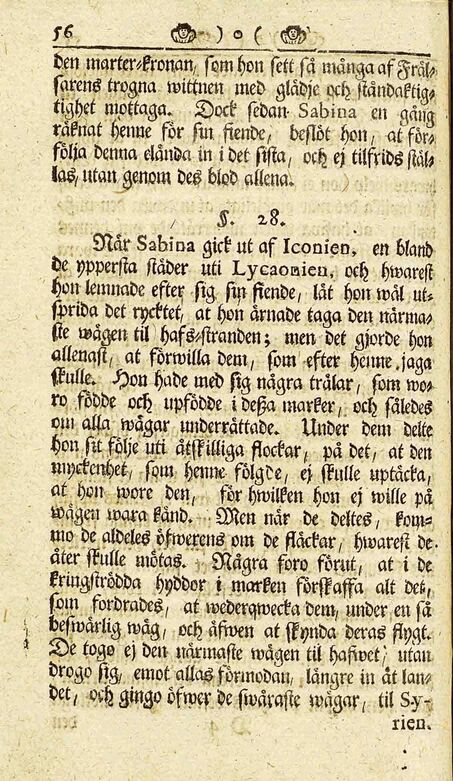 56 ) o (
den marter-kronan, som hon sett så många af Fräl-
sarens trogna wittnen med glädje och ståndaktig-
tighet mottaga. Dock sedan Sabina en gång
räknat henne för sin fiende, beslöt hon, at för-
följa denna elända in i det sista, och ej tilfrids stäl-
las, utan genom des blod allena.
§. 28.
När Sabina gick ut af Iconien, en bland
de yppersta städer uti Lycaonien, och hwarest
hon lemnade efter sig sin fiende, lät hon wäl ut-
sprida det rycktet, at hon ärnade taga den närma-
ste wägen til hafs-stranden; men det gjorde hon
allenast, at förwilla dem, som efter henne jaga
skulle. Hon hade med sig några trälar, som wo-
ro födde och upfödde i deßa marker, och således
om alla wägar underrättade. Under dem delte
hon sit följe uti åtskilliga flockar, på det, at den
myckenhet, som henne fölgde, ej skulle uptäcka,
at hon wore den, för hwilken hon ej wille på
wägen wara känd. Men när de deltes, kom-
mo de aldeles öfwerens om de fläckar, hwarest de
åter skulle mötas. Några foro förut, at i de
kringströdda hyddor i marken förskaffa alt det,
som fordrades, at wederqwecka dem, under en så
beswärlig wäg, och äfwen at skynda deras flygt.
De togo ej den närmaste wägen til hafwet, utan
drogo sig, emot allas förmodan, längre in åt lan-
det, och gingo öfwer de swåraste wägar, til Sy-
rien.